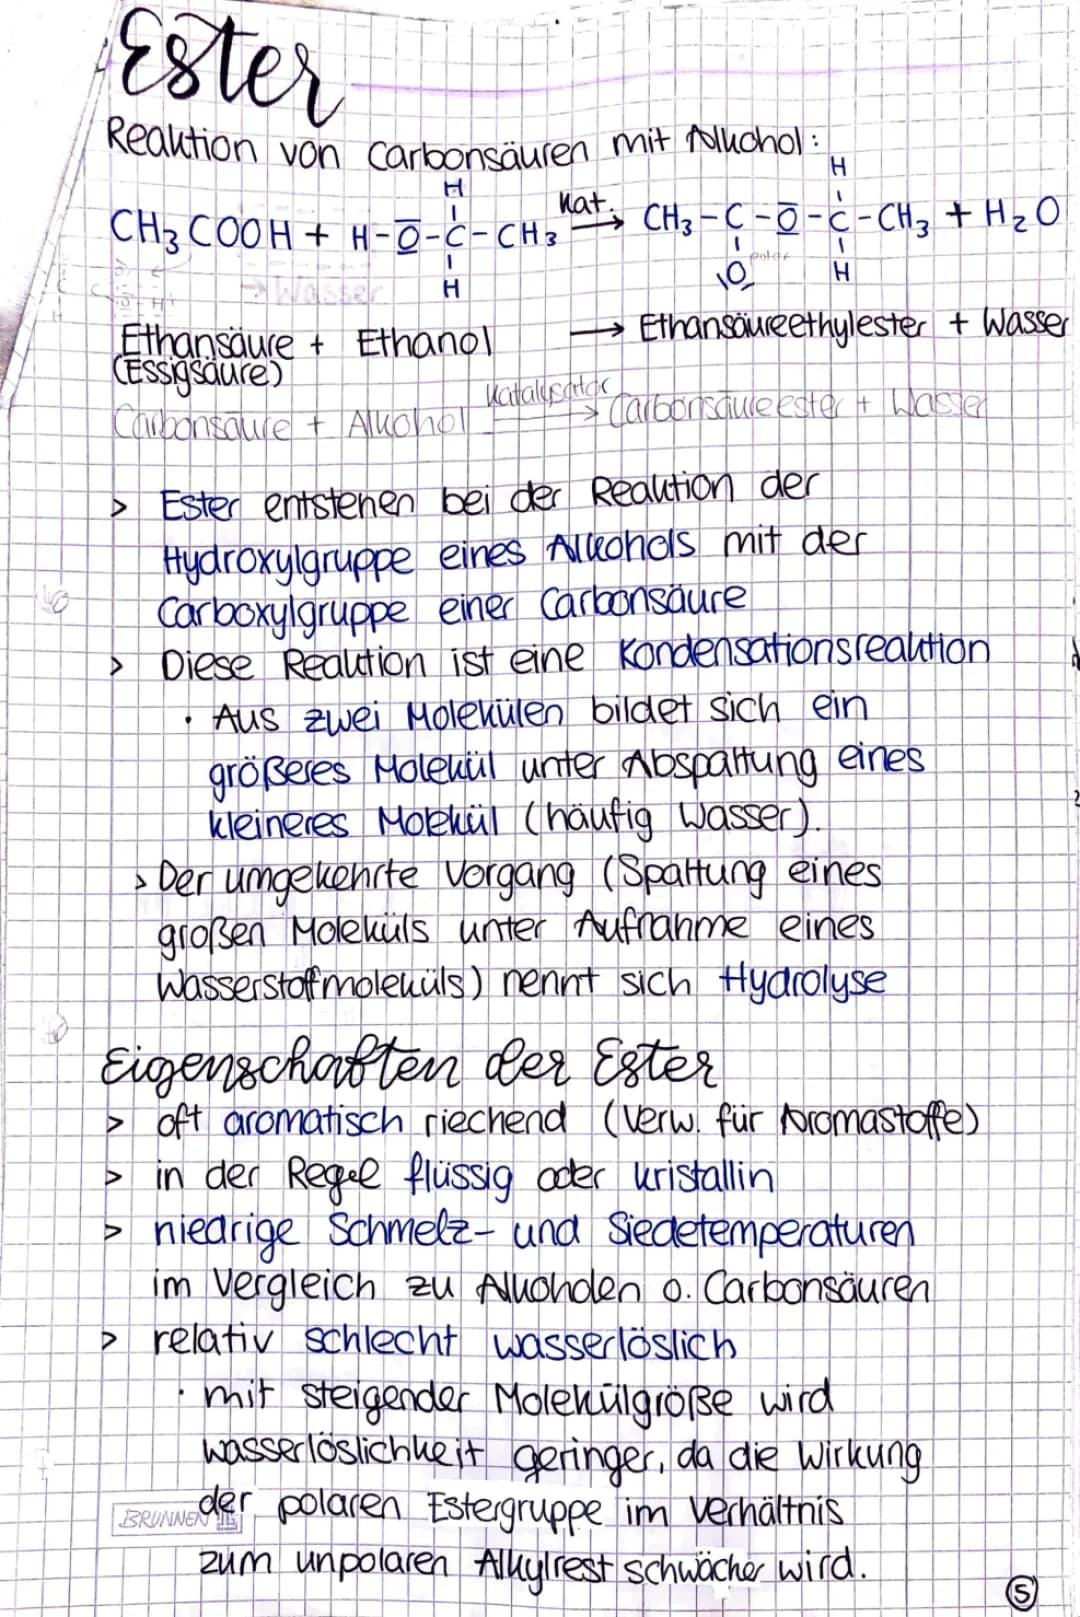 Ester
Reaktion von Carbonsäuren mit Alkohol:
H H
CH3COOH + H-O-C-CH3 Kat. → CH3-C-O-C-CH3 + H2O
polar
→ Wasser H O H
Ethansäure + Ethanol → Ethansäureethylester + Wasser
(Essigsäure)
Carbonsäure + Alkohol Katalysator → Carbonsäureester + Wasser
> Ester entstehen bei der Reaktion der
Hydroxylgruppe eines Alkohols mit der
Carboxylgruppe einer Carbonsäure
> Diese Reaktion ist eine Kondensationsreaktion
· Aus zwei Molekülen bildet sich ein
größeres Molekül unter Abspaltung eines
kleineres Molekül (häufig Wasser).
> Der umgekehrte Vorgang (Spaltung eines
großen Moleküls unter Aufnahme eines
Wasserstoffmoleküls) nennt sich Hydrolyse
Eigenschaften der Ester
> oft aromatisch riechend (Verw. für Aromastoffe)
> in der Regel flüssig oder kristallin
> niedrige Schmelz- und Siedetemperaturen
im Vergleich zu Alkoholen o. Carbonsäuren
> relativ schlecht wasserlöslich
· mit steigender Molekülgröße wird
wasserlöslichkeit geringer, da die Wirkung
der polaren Estergruppe im Verhältnis
BRUNNEN
zum unpolaren Alkylrest schwächer wird.
5